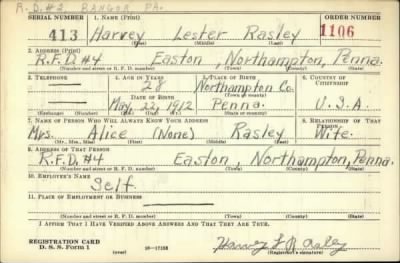 R.D.#2, BANGOR PA.
SERIAL NUMBER 1. NAME (Print) ORDER NUMBER
413 Harvey Lester Rasley 1106
(First) (Middle) (Last)
2. ADDRESS (Print)
R.F.D.#4 Easton, Northampton, Penna.
(Number and street or R. F. D. number) (Town) (County) (State)
3. TELEPHONE 4. AGE IN YEARS 5. PLACE OF BIRTH 6. COUNTRY OF CITIZENSHIP
28 Northampton Co.
DATE OF BIRTH (Town or county)
May 22, 1912 Penna. U.S.A.
(Exchange) (Number) (Mo.) (Day) (Yr.) (State or country)
7. NAME OF PERSON WHO WILL ALWAYS KNOW YOUR ADDRESS 8. RELATIONSHIP OF THAT PERSON
Mrs. Alice (None) Rasley Wife.
(Mr., Mrs., Miss) (First) (Middle) (Last)
9. ADDRESS OF THAT PERSON
R.F.D.#4 Easton, Northampton, Penna.
(Number and street or R. F. D. number) (Town) (County) (State)
10. EMPLOYER'S NAME
Self.
11. PLACE OF EMPLOYMENT OR BUSINESS
(Number and street or R. F. D. number) (Town) (County) (State)
I AFFIRM THAT I HAVE VERIFIED ABOVE ANSWERS AND THAT THEY ARE TRUE.
REGISTRATION CARD
D. S. S. Form 1 (over) 16—17105 Harvey L Rasley
(Registrant's signature)